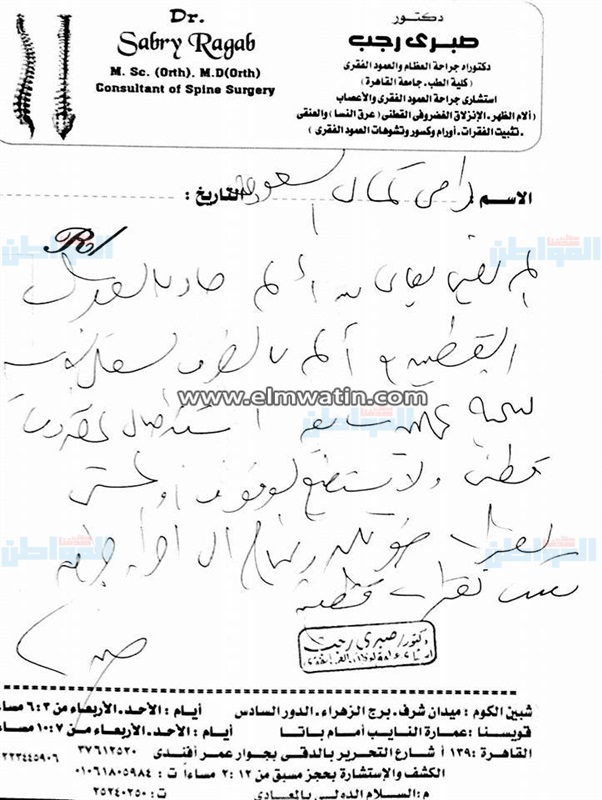 Dr.
Sabry Ragab
M. Sc. (Orth). M.D(Orth)
Consultant of Spine Surgery
دكتور
صبرى رجب
دكتوراه جراحة العظام والعمود الفقرى
( كلية الطب . جامعة القاهرة )
استشارى جراحة العمود الفقرى والأعصاب
( آلام الظهر . الإنزلاق الغضروفى القطنى ( عرق النسا ) والعنقى
. تثبيت الفقرات . أورام وكسور وتشوهات العمود الفقرى )
الاسم : كمال السعود التاريخ :
R/
يعانى من ألم حاد
القطنيه و ألم
www.elmwatin.com
نتيجة عملية سابقه استئصال غضروف
قطنى ولا يستطيع الوقوف أو المشى
لفترات طويله
فقرات قطنيه
دكتور / صبرى رجب
شبين الكوم : ميدان شرف . برج الزهراء . الدور السادس أيام : الأحد . الأربعاء من ٣ : ٦ مساء
قويسنا : عمارة النايب أمام باتا أيام : الأحد . الأربعاء من ٧ : ١٠ مساء
القاهرة : ١٣٩ أ شارع التحرير بالدقى بجوار عمر أفندى ٣٧٦١٢٥٢٠
الكشف والإستشارة بحجز مسبق من ١٢ : ٢ مساءاً ت : ٠١٠٦١٨٠٥٩٨٤
م : السلام الدولى بالمعادى ت : ٢٥٢٤٠٢٥٠
المواطن